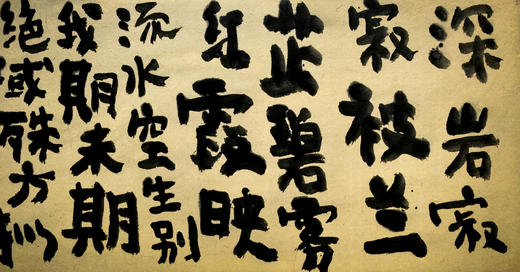 深岩寂
寂被兰
芷碧雾
红霞映
流水空生别
我期未期
绝域殊方